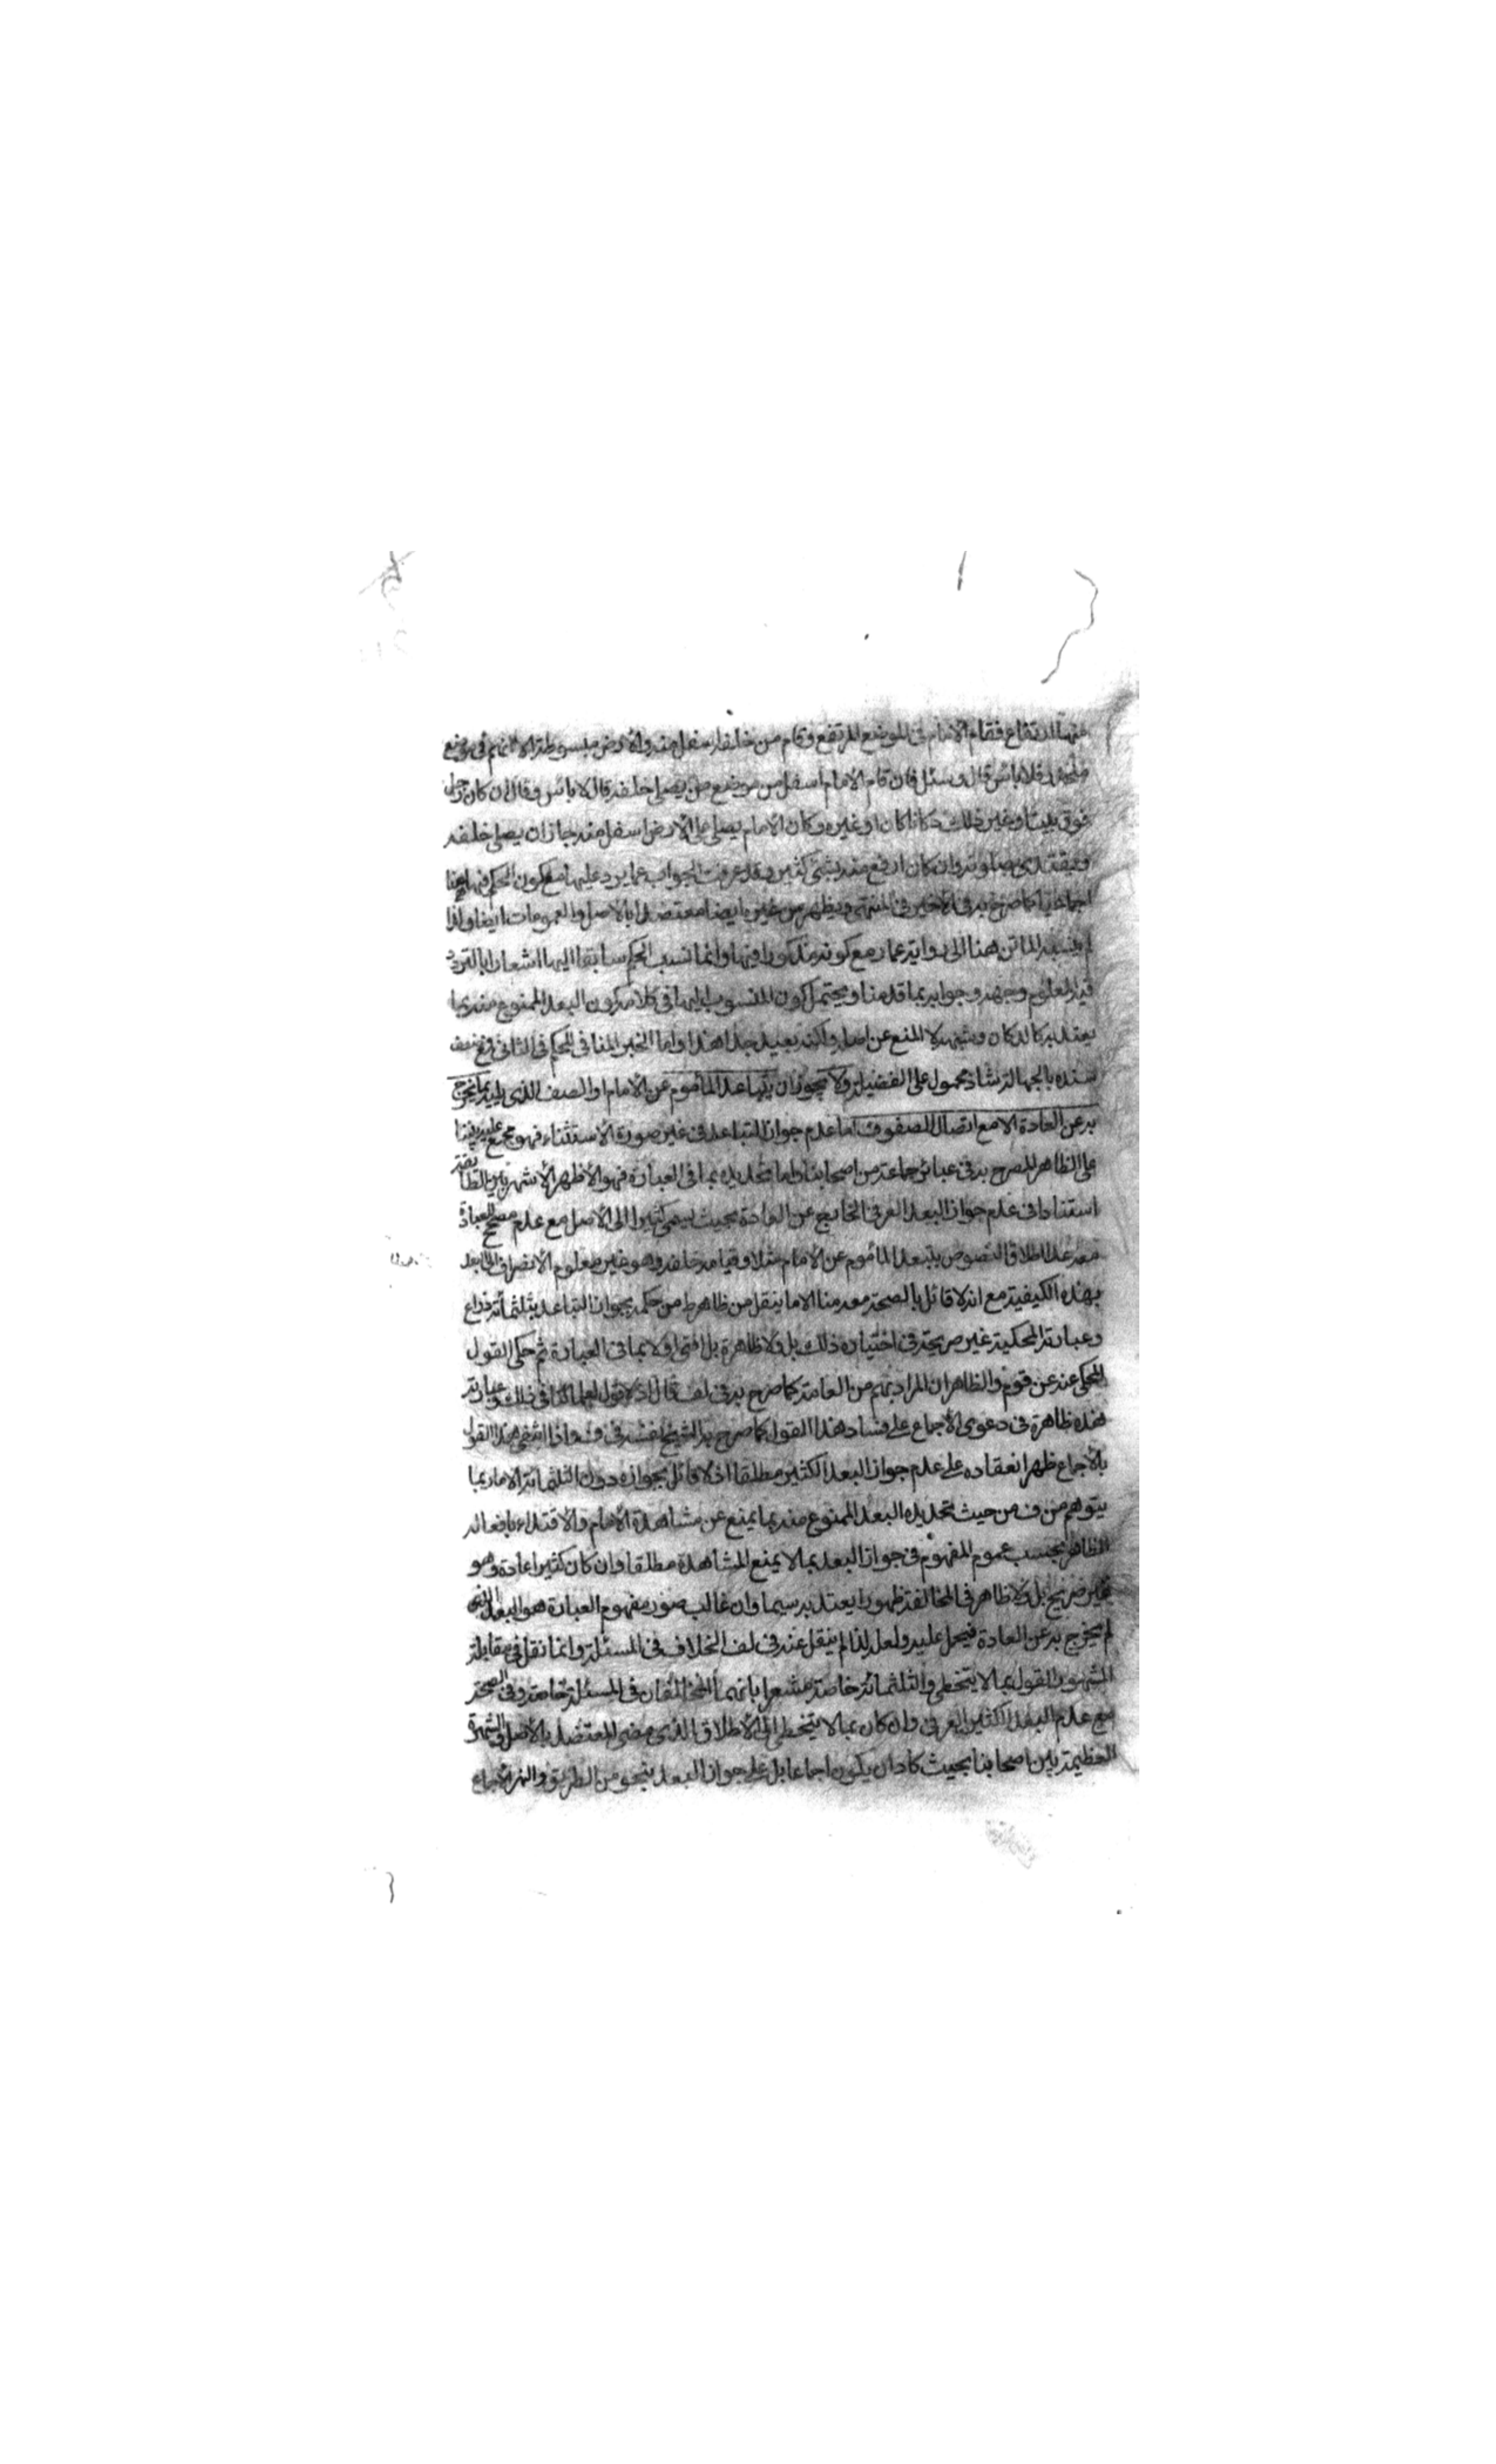 منها ارتفاع فقام الامام في الموضع المرتفع وقام من خلفه اسفل منه والأرض مبسوطة الا انهم في موضع
منحدر فلا بأس قال وسئل فان قام الامام اسفل من موضع من يصلي خلفه قال لا بأس وقال ان كان رجل
فوق بيت او غير ذلك دكانا كان او غيره وكان الامام يصلي على الأرض اسفل منه جاز ان يصلي خلفه
ويقتدي بصلوته وان كان ارفع منه بشئ كثير وقد عرفت الجواب عما يرد عليها مع كون الحكم فيها هنا
اجماعيا كما صرح به في الأخير في المنتهى ويظهر من غيره ايضا معتضدا بالاصل والعمومات ايضا ولذا
لم ينسبه الماتن هنا الى رواية عمار مع كونه مذكورا فيها وانما نسب الحكم سابقا اليها اشعارا بالتردد
فيه لمعلوم وجهه وجوابه بما قدمنا ويحتمل كون المنسوب اليها في كلامه كون البعد الممنوع منه بما
يعتد به كالدكان وشبهه لا المنع عن اصله ولكنه بعيد جدا هذا واما الخبر المنافي للحكم في الثاني فمع ضعف
سنده بالجهالة شاذ محمول على الفضيلة ولا يجوز ان يتباعد المأموم عن الامام او الصف الذي يليه بما يخرج
به عن العادة الا مع اتصال الصفوف اما عدم جواز التباعد في غير صورة الاستثناء فهو مجمع عليه بيننا
على الظاهر المصرح به في عبائر جماعة من اصحابنا واما تحديده بما في العبارة فهو الأظهر الأشهر بين الطائفة
استنادا في عدم جواز البعد العرفي الخارج عن العادة بحيث يسمى كثيرا الى الأصل مع عدم مصحح للعبادة
معه عدا اطلاق النصوص بتبعد المأموم عن الامام مثلا وقيامه خلفه وهو غير معلوم الانصراف الى البعد
بهذه الكيفية مع انه لا قائل بالصحة معه منا الا ما ينقل من ظاهر ط من حكمه بجواز التباعد بثلثمائة ذراع
وعبارته المحكية غير صريحة في اختياره ذلك بل ولا ظاهرة بل افتى اولا بما في العبارة ثم حكى القول
المحكي عنه عن قوم والظاهر ان المراد بهم من العامة كما صرح به في لف قال اذ لا قول لعلمائنا في ذلك وعبارته
هذه ظاهرة في دعوى الاجماع على فساد هذا القول كما صرح به الشيخ نفسه في ف واذا انتفى هذا القول
بالاجماع ظهر انعقاده على عدم جواز البعد الكثير مطلقا اذ لا قائل بجوازه دون الثلثمائة الا ما ربما
يتوهم من ف من حيث تحديده البعد الممنوع منه بما يمنع عن مشاهدة الأمام والاقتداء بافعاله
الظاهر بحسب عموم المفهوم في جواز البعد بما لا يمنع المشاهدة مطلقا وان كان كثيرا عادة وهو
غير صريح بل ولا ظاهر في المخالفة ظهورا يعتد به سيما وان غالب صور مفهوم العبارة هو البعد الذي
لم يخرج به عن العادة فيحمل عليه ولعله لذا لم ينقل عنه في لف الخلاف في المسئلة وانما نقل في مقابلة
المشهور القول بما لا يتخطى والثلثمائة خاصة مشعرا بانهما المخالفان في المسئلة خاصة وفي الصحة
مع عدم البعد الكثير العرفي وان كان بما لا يتخطى الى الأطلاق الذي مضى المعتضد بالأصل والشهرة
العظيمة بين اصحابنا بحيث كاد ان يكون اجماعا بل على جواز البعد بنحو من الطريق والنهر الأجماع